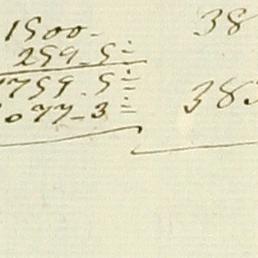 1500.-
259-5=
1759.5=
077-3=
38
383